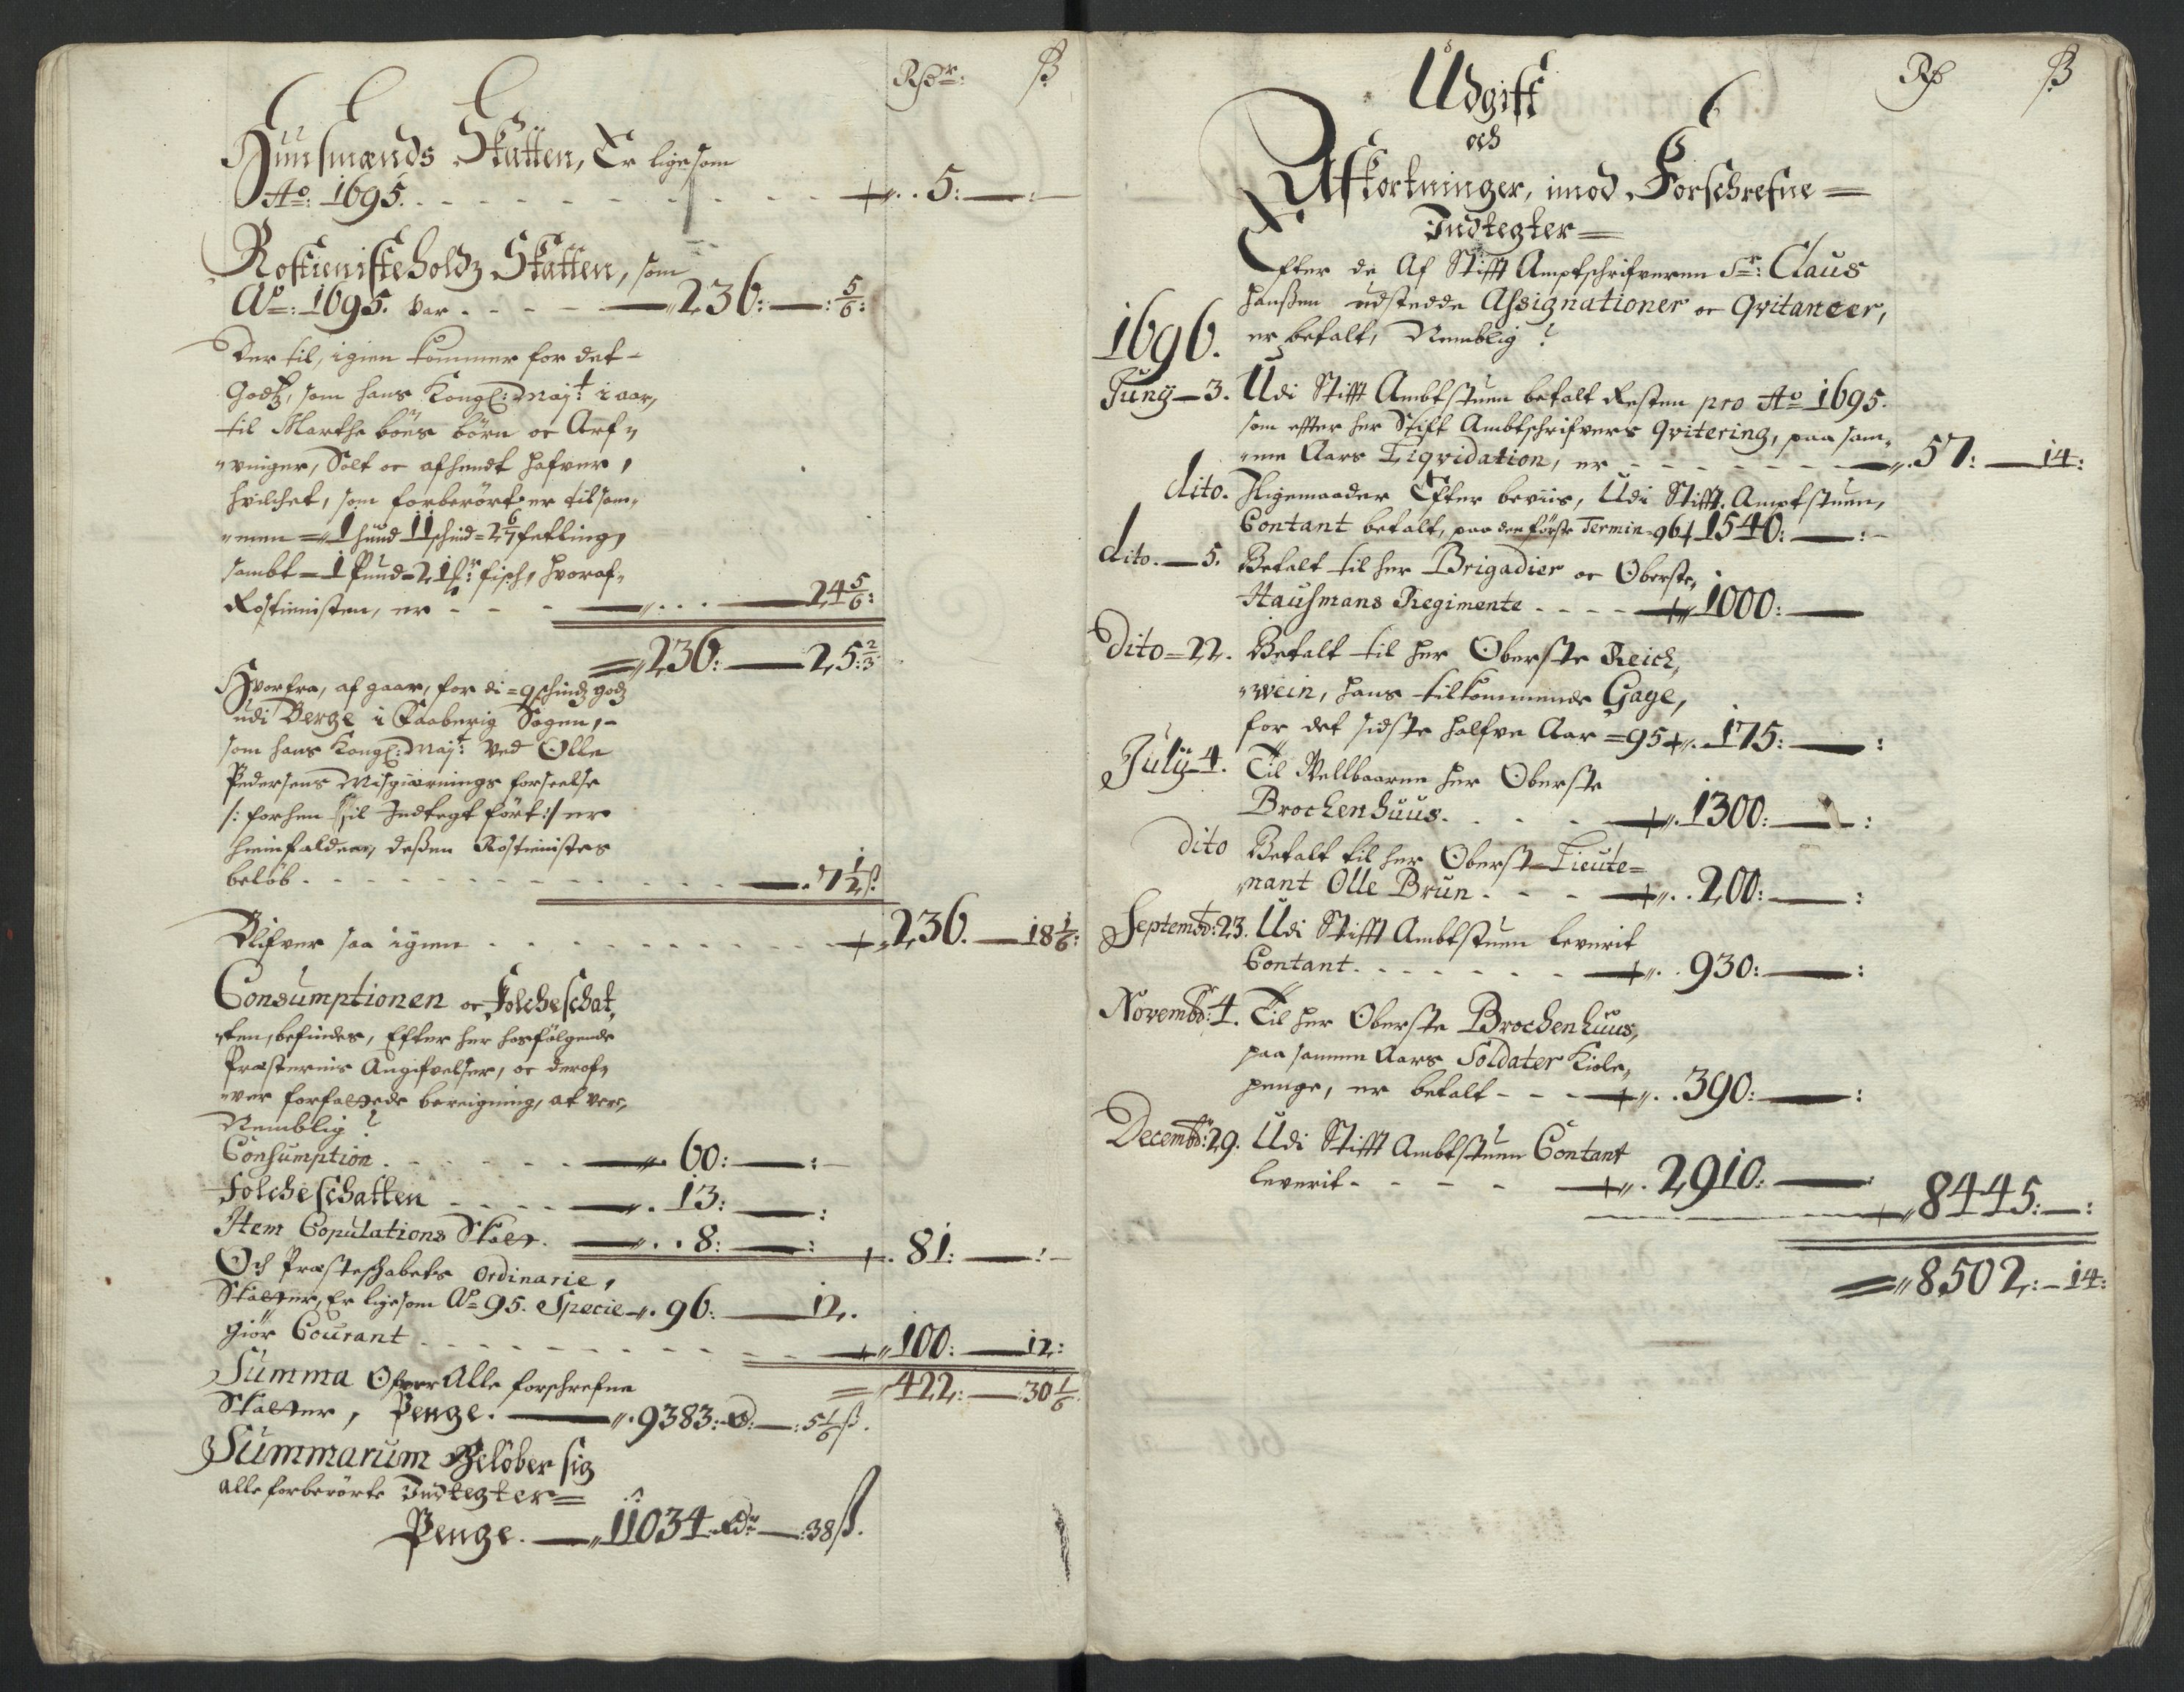 Rdr: ß
Huusmænds Skatten, Er ligesom
Ao: 1695. 5:
Rostieniste holdz Skatten, som
Ao: 1695. var 236: 5/6:
Der til, igien kommer for det
Godtz, som hans Kongl: Maj:t i aar,
til Marthe boes börn oc Arf-
vinger, Solt oc afhendt hafver,
hvilchet, som forberört er tilsam-
men 1 hund 11 schind 2 6/7 setling,
sambt 1 Pund 21 fisch, hvoraf
Rostienisten, er 24 5/6:
236: 25: 2/3
Hvorfra, af gaar, for di 9 schindz godz
udi Berge i Faaberig Sogen,
som hans Kongl: Maj:t ved Olle
Pedersens Misgiernings forseelse
/: forhen til Indtegt fört :/ er
hiemfalden, deßen Rostienistes
belöb 7 1/2 ß
Blifver saa igien 236. 18 1/6:
Consumptionen oc Folcheschat-
ten, befindes, Efter her hosfölgende
Præsternis Angifvelser, oc derof-
ver forfattede bereigning, at vere,
Nemblig
Consumption 60:
Folcheschatten 13:
Item Copulations Skatt. 8: 81:
Och Præsteschabets Ordinarie,
Skatter, Er ligesom Ao 95. Specie 96: 12.
giör Courant 100: 12:
Summa Ofver Alle forschrefne 422: 30 1/6
Skatter, Penge. 9383: Rd: 5 1/6 ß.
Summarum Belöber sig
alle forberörte Indtegter
Penge. 11034 Rdr 38 ß.
Rd ß
Udgift
och
Afkortninger, imod Forschrefne
Indtegter
Efter de Af Stifft Amptschrifveren Sr: Claus
Hanßen udstedde Assignationer oc Qvitancer,
1696. er betalt, Nemblig
Juny 3. Udi Stifft Ambtstuen betalt Resten pro Ao 1695.
som efter her Stift Ambtschrifvers qvitering, paa sam-
me Aars Liqvidation, er 57: 14:
dito. Ligemaader Efter beviis, Udi Stifft Amptstuen,
Contant betalt, paa den förste Termin 96 1540:
dito. 5. Betalt til her Brigadier oc Oberste,
Hausmans Regimente 1000:
Dito 22. Betalt til her Oberste Reich,
wein, hans tilkommende Gage,
for det sidste halfve Aar 95 175:
July 4. Til Vellbaarne her Oberste
Brochenhuus. 1300:
dito Betalt til her Oberst Lieute-
nant Olle Brun 200:
Septembr: 23. Udi Stifft Ambtstuen leverit
Contant. 930:
Novembr: 4. Til her Oberste Brochenhuus,
paa samme Aars Soldater Kiole,
penge, er betalt 390:
Decembr: 29. Udi Stifft Ambtstuen Contant
leverit 2910: 8445:
8502: 14: